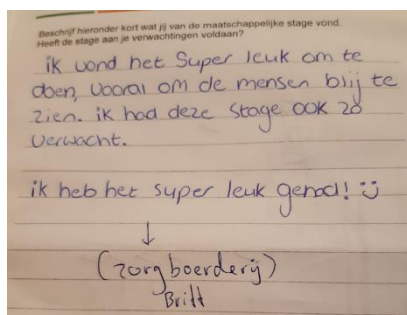 Beschrijf hieronder kort wat jij van de maatschappelijke stage vond.
Heeft de stage aan je verwachtingen voldaan?
ik vond het super leuk om te
doen, vooral om de mensen blij te
zien. ik had deze stage ook zo
verwacht.
ik heb het super leuk gehad! :)
↓
(zorgboerderij)
Britt